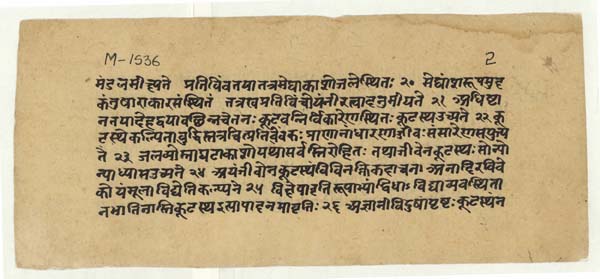 M-1536
2
मंडलमीक्ष्यते प्रतिबिंबतया तत्र मेघाकाशो जले स्थितः २० मेघांशरूपमुद
कं तुषाराकारसंस्थितं तत्र खप्रतिबिंबोयं नीरत्वादनुमीयते २१ अधिष्टा
नतया देहद्वयावछिन्नचेतनः कूटवन्निर्विकारेण स्थितः कूटस्थ उच्यते २२ कू
टस्थे कल्पिता बुद्धिस्तत्र चित्प्रतिबिंबकः प्राणानां धारणाज्जीवः संसारेण स युज्य
ते २३ जलव्योम्ना घटाकाशो यथा सर्वस्तिरोहितः तथा जीवेन कूटस्थः सोन्यो
न्याध्यास उच्यते २४ अयं जीवो न कूटस्थं विविनक्ति कदाचना अनादिरविवे
कोयं मूलाविद्येति कल्प्यते २५ विक्षेपावृतिरूपाभ्यां द्विधाविद्या व्यवस्थिता
न भाति नास्ति कूटस्थ इत्यापादनमावृतिः २६ अज्ञानी विदुषा पृष्टः कूटस्थं न